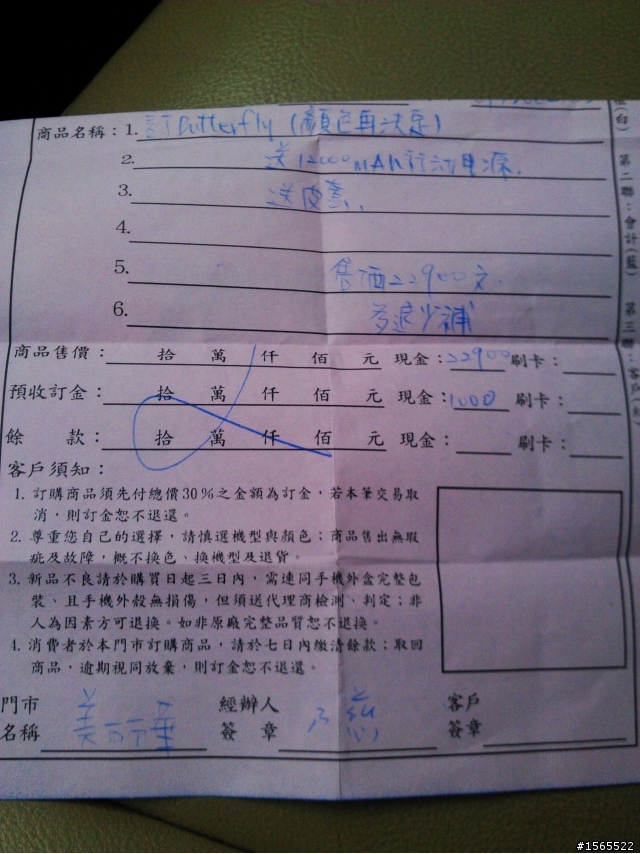 商品名稱：1. 訂Butterfly (顏色再決定)
2. 送12000MAH行動電源.
3. 送皮套.
4.
5. 售價22900元.
6. 多退少補
商品售價： 拾 萬 仟 佰 元 現金：22900 刷卡：
預收訂金： 拾 萬 仟 佰 元 現金：1000 刷卡：
餘 款： 拾 萬 仟 佰 元 現金： 刷卡：
客戶須知：
1. 訂購商品須先付總價30%之金額為訂金，若本筆交易取
消，則訂金恕不退還。
2. 尊重您自己的選擇，請慎選機型與顏色；商品售出無瑕
疵及故障，概不換色、換機型及退貨。
3. 新品不良請於購買日起三日內，需連同手機外盒完整包
裝、且手機外殼無損傷，但須送代理商檢測、判定；非
人為因素方可退換。如非原廠完整品質恕不退換。
4. 消費者於本門市訂購商品，請於七日內繳清餘款；取回
商品，逾期視同放棄，則訂金恕不退還。
門市 經辦人 客戶
名稱 簽 章 簽章
第二聯：會計(藍) 第三聯：客
#1565522